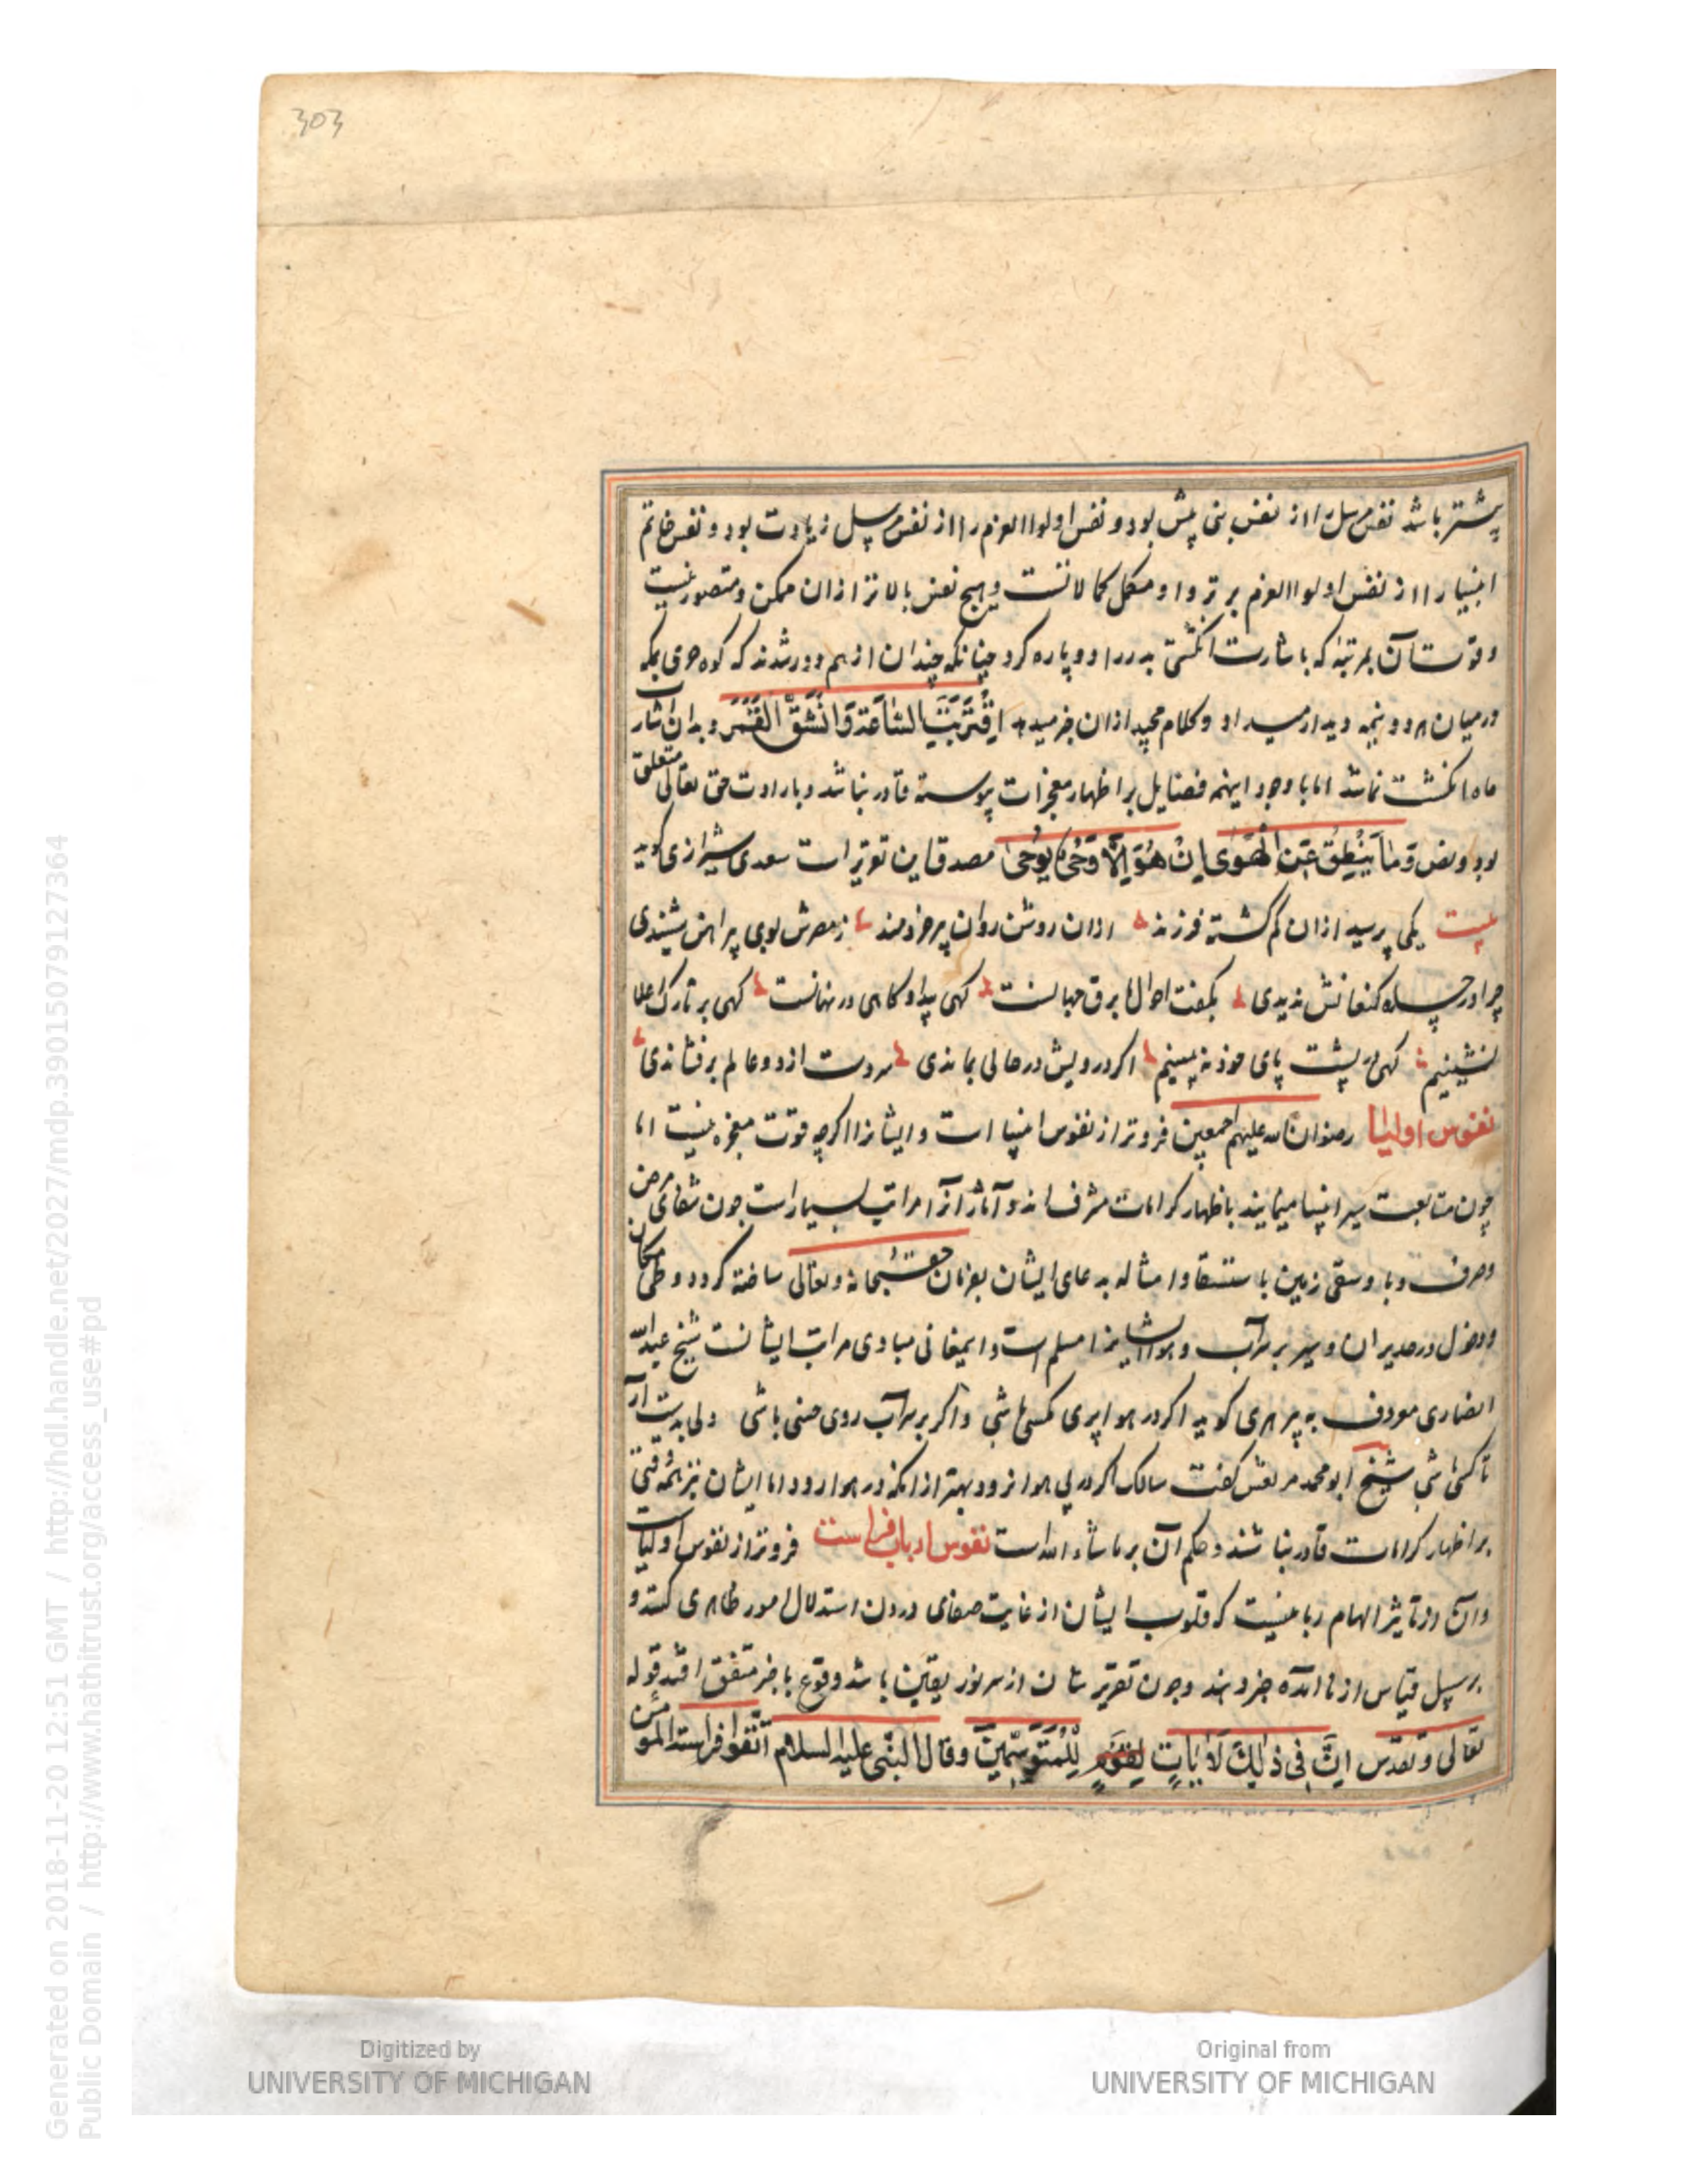 303
پیشتر باشد نفس مرسل را از نفس نبی پیش بود و نفس اولوا العزم را از نفس مرسل زیادت بود و نفس خاتم
انبیا را از نفس اولوا العزم برتر و او مکمل کمالاتست و هیچ نفس بالاتر از ان ممکن و متصور نیست
و قوت آن بمرتبۀ که باشارت انگشتی بدر را دو پاره کرد چنانکه چندان از هم دور شدند که کوه حری بمکه
درمیان هر دو نیمه دیدار میداد و کلام مجید ازان خبر میدهد اِقْتَرَبَتِ السَّاعَةُ وَانْشَقَّ الْقَمَرُ و بدان اثار
ماه انگشت نما شد اما با وجود اینهمه فضایل بر اظهار معجزات پیوسته قادر نباشد و بارادت حق تعالی متعلق
بود و نص وَمَا یَنْطِقُ عَنِ الْهَوٰی اِنْ هُوَ اِلَّا وَحْیٌ یُوحٰی مصدق این تقریر است سعدی شیرازی کوید
بیت یکی پرسید ازان کم کشته فرزند ازان روشن روان پیر خردمند ز مصرش بوی پیراهن شنیدی
چرا در چاه کنعانش ندیدی بگفت احوال ما برق جهانست کهی پیدا و کاهی در نهانست کهی بر تارک اعلا
نشینیم کهی بر پشت پای خود نه بینیم اکر درویش در حالی بماندی سر و دست از دو عالم برفشاندی
نفوس اولیا رضوان الله علیهم اجمعین فروتر از نفوس انبیا است و ایشانرا اکرچه قوت معجزه نیست اما
چون متابعت سیر انبیا مینمایند باظهار کرامات مشرف اند و آثار آنرا مراتب بسیار است چون شفای مرض
و صرف وبا و سقی زمین باستسقا و امثاله بدعای ایشان بفرمان حق سبحانه و تعالی ساخته کردد و طی مکان
و دخول در و سیر بر سر آب و هوا ایشانرا مسلم است و اینمعانی مبادی مراتب ایشانست شیخ عبدالله
انصاری معروف به پیر هری کوید اکر در هوا پری مکسی باشی و اکر بر سر آب روی خسی باشی دلی بدست آر
تا کسی باشی شیخ ابو محمد مرتعش کفت سالک اکر در پی هوا نرود بهتر از انکه در هوا رود اما ایشان نیز همه وقتی
بر اظهار کرامات قادر نباشند و حکم آن بر ماشاء الله است نفوس ارباب فراست فروتر از نفوس اولیاست
و آن از تاثیر الهام ربانیست که قلوب ایشان از غایت صفای درون استدلال امور ظاهری کنند و
بر سبیل قیاس از نا آمده خبر دهند و چون تقریر شان از سر نور یقین باشد وقوع با خبر متفق افتد قوله
تعالی و تقدس اِنَّ فِی ذٰلِکَ لَاٰیَاتٍ لِقَوْمٍ لِلْمُتَوَسِّمِینَ و قال النبی علیه السلام اتقوا فراسة المؤمن
Digitized by
UNIVERSITY OF MICHIGAN
Original from
UNIVERSITY OF MICHIGAN
Generated on 2018-11-20 12:51 GMT / http://hdl.handle.net/2027/mdp.39015079127364
Public Domain / http://www.hathitrust.org/access_use#pd